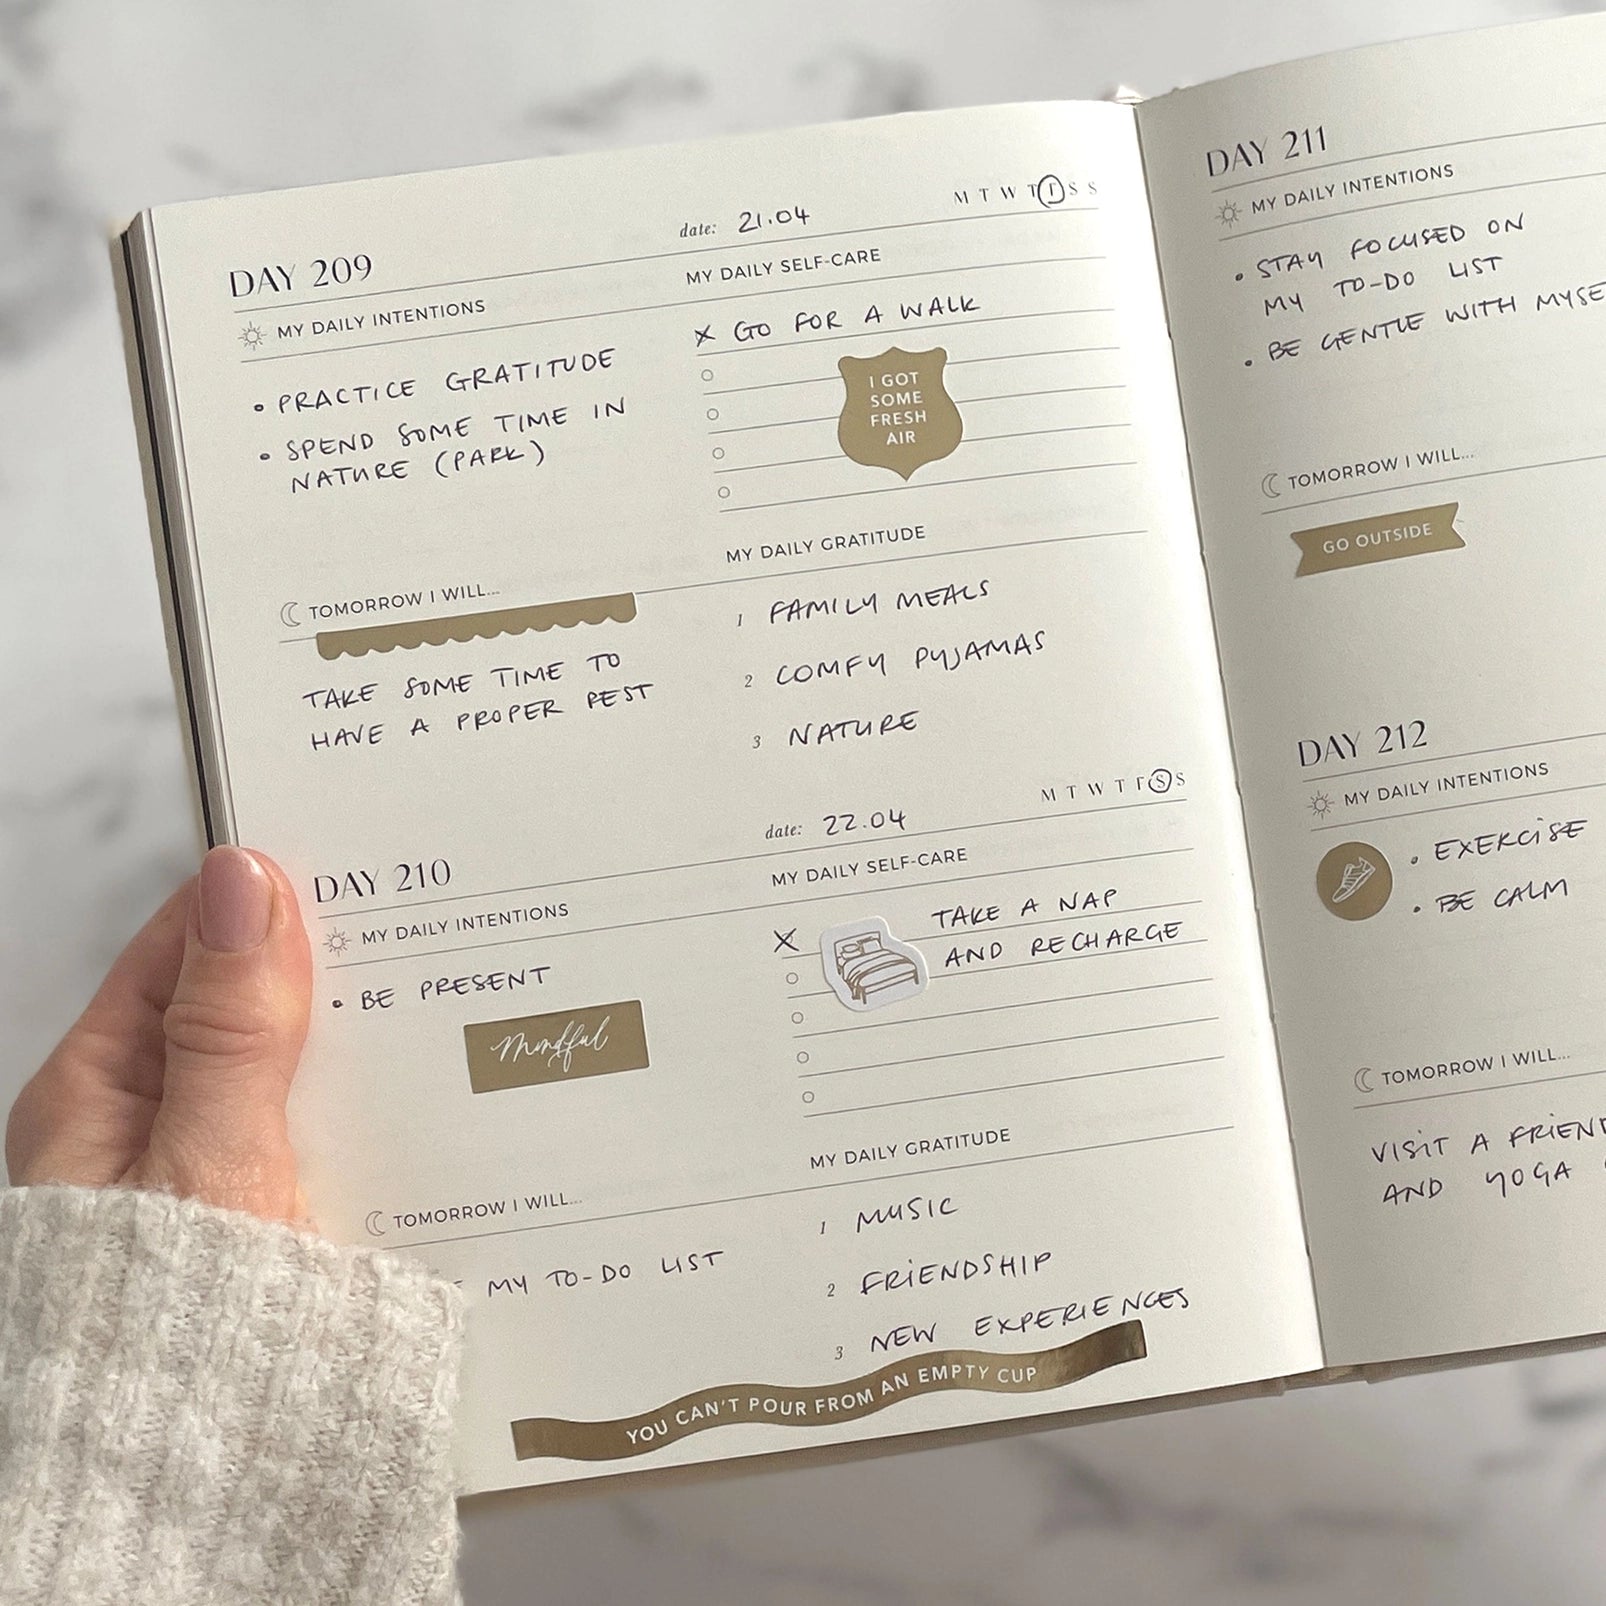 DAY 209
date: 21.04
M T W T F S S
MY DAILY INTENTIONS
• PRACTICE GRATITUDE
• SPEND SOME TIME IN
NATURE (PARK)
TOMORROW I WILL...
TAKE SOME TIME TO
HAVE A PROPER REST
MY DAILY SELF-CARE
X GO FOR A WALK
I GOT
SOME
FRESH
AIR
MY DAILY GRATITUDE
1 FAMILY MEALS
2 COMFY PYJAMAS
3 NATURE
DAY 210
date: 22.04
M T W T F S S
MY DAILY INTENTIONS
• BE PRESENT
Mindful
TOMORROW I WILL...
MY TO-DO LIST
MY DAILY SELF-CARE
X TAKE A NAP
AND RECHARGE
MY DAILY GRATITUDE
1 MUSIC
2 FRIENDSHIP
3 NEW EXPERIENCES
YOU CAN'T POUR FROM AN EMPTY CUP
DAY 211
MY DAILY INTENTIONS
• STAY FOCUSED ON
MY TO-DO LIST
• BE GENTLE WITH MYSE
TOMORROW I WILL...
GO OUTSIDE
DAY 212
MY DAILY INTENTIONS
• EXERCISE
• BE CALM
TOMORROW I WILL...
VISIT A FRIEND
AND YOGA